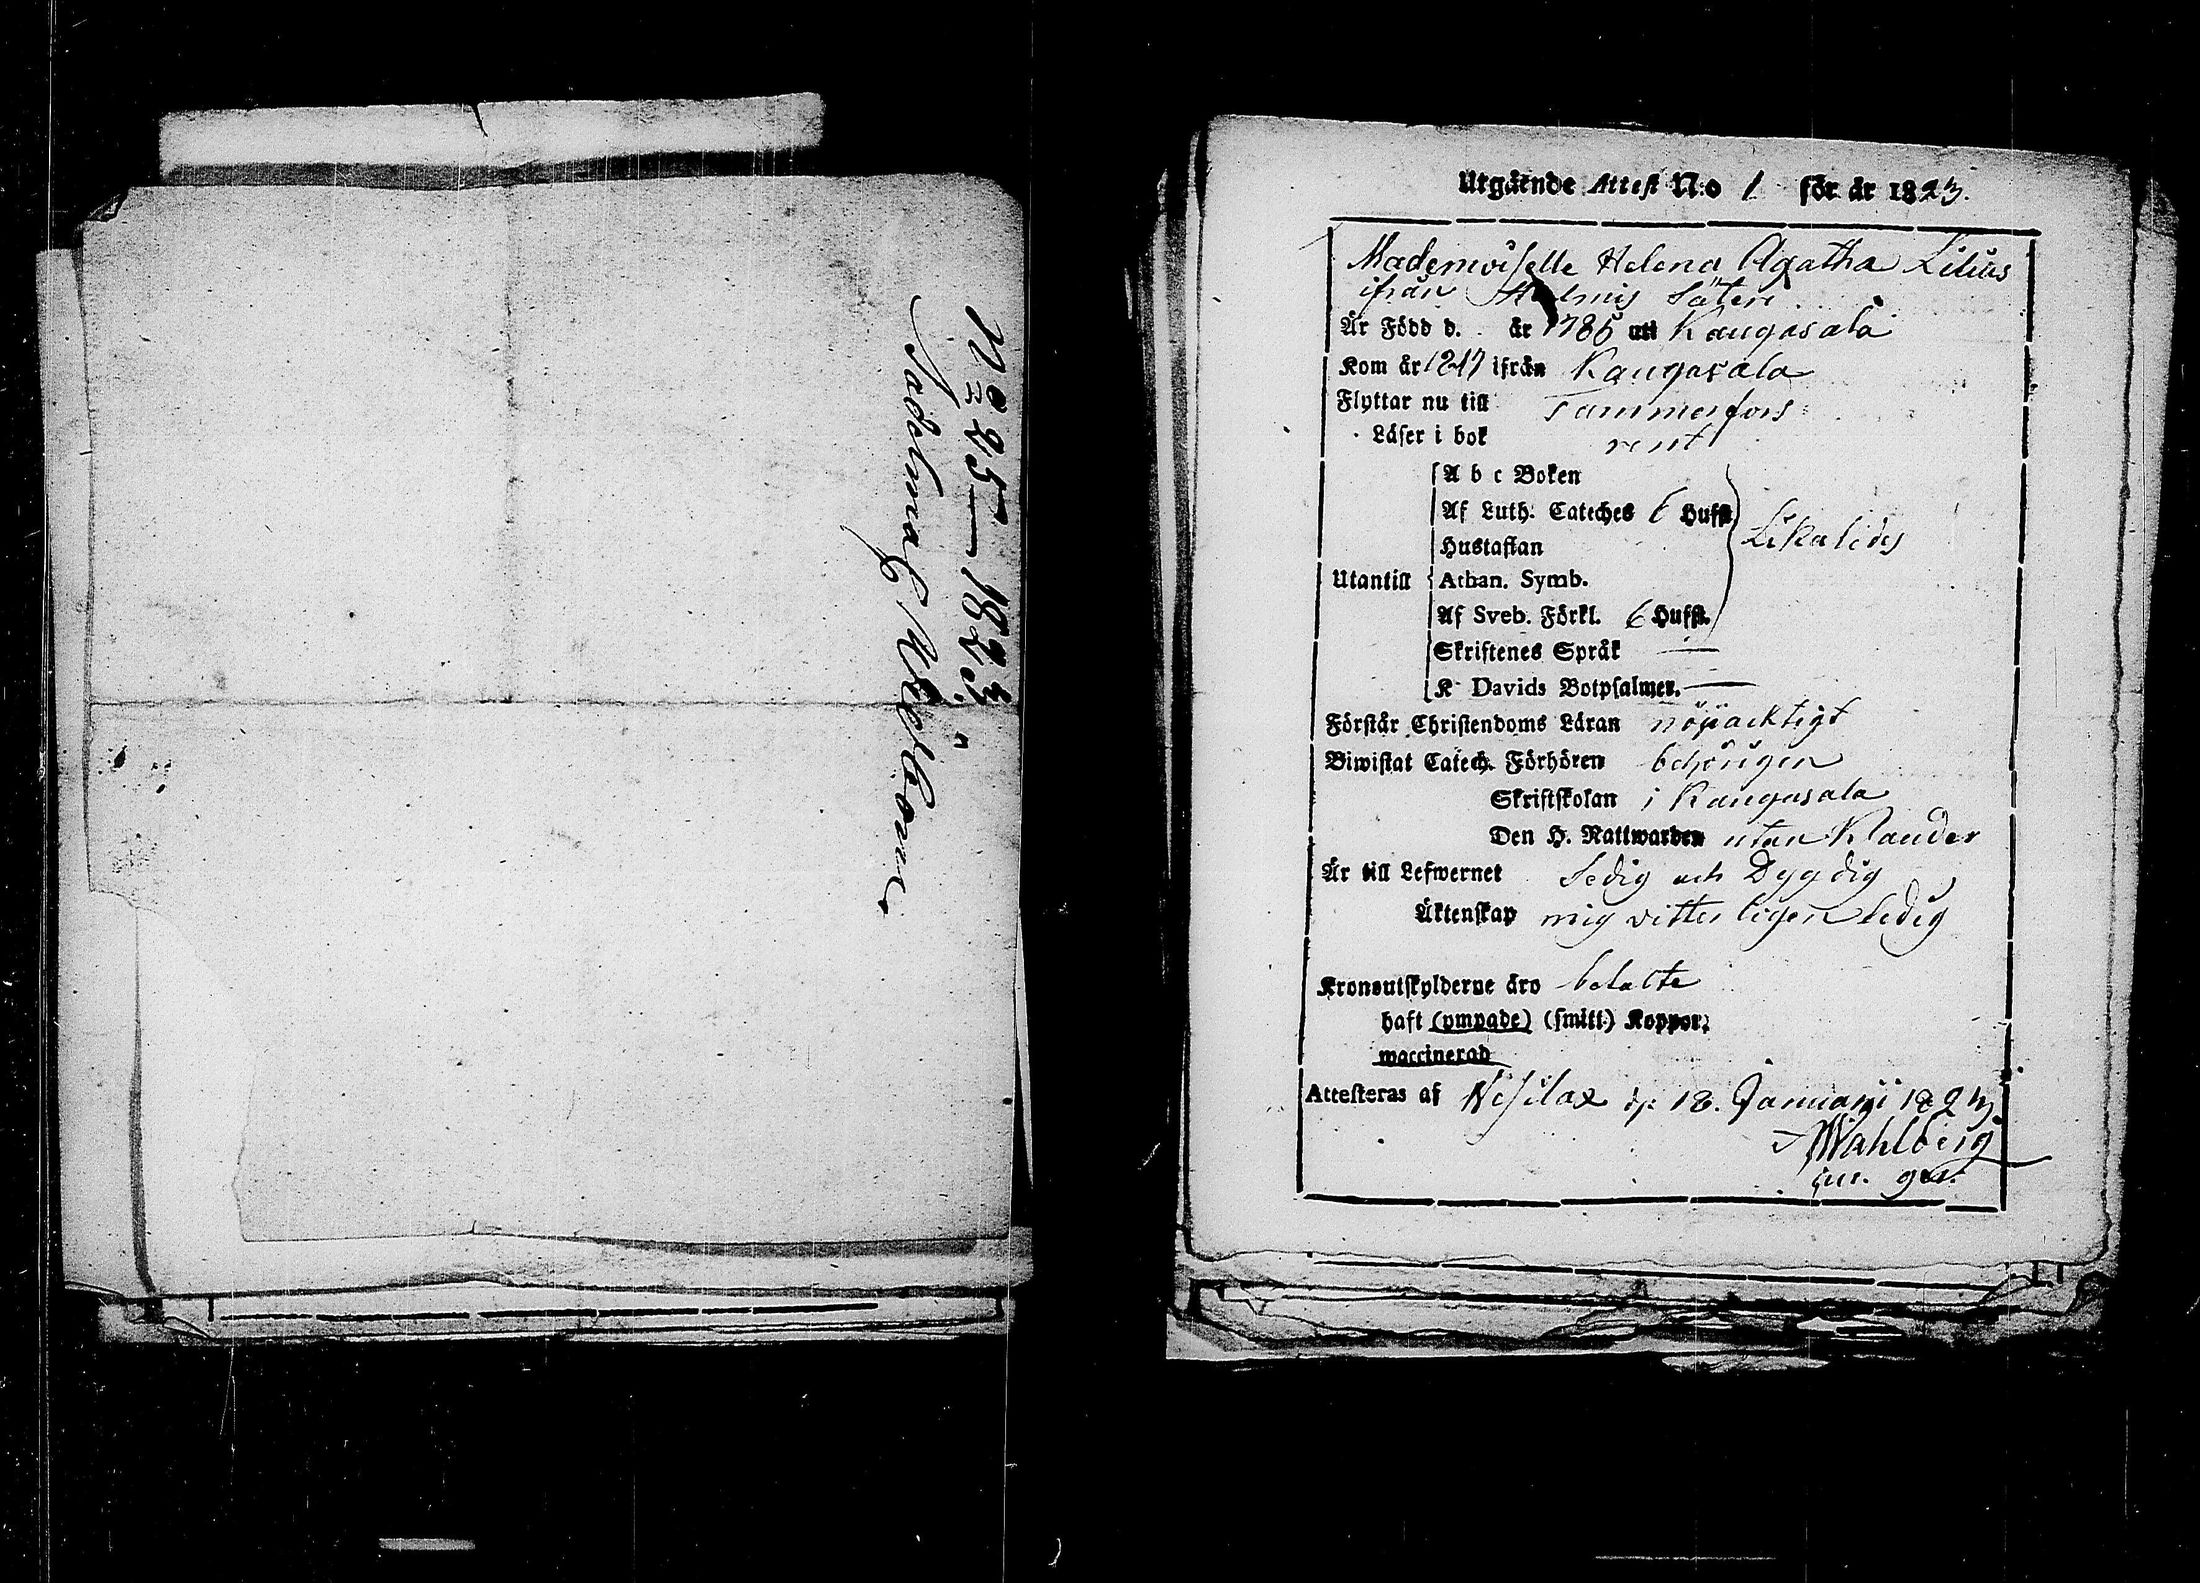 No 25 — 1823.
Sadelmak Wetbom
Utgående Attest N:o 1 för år 1823.
Mademoiselle Helena Agatha Lilius
ifrån säteri
År Född d. år 1786 uti Kangasala
Kom år 1817 ifrån Kangasala
Flyttar nu till Tammerfors
Läser i bok rent
A b c Boken
Af Luth. Cateches 6 Hufst.
Hustaflan
Likaledes
Utantill Athan. Symb.
Af Sveb. Förkl. 6 Hufst.
Skriftenes Språk —
K Davids Botpsalmer. —
Förstår Christendoms Läran nöjacktigt
Biwistat Catech. Förhören behörigen
Skriftskolan i Kangasala
Den H. Nattwarden utan Klander
Är till Lefwernet Sedig och Dygdig
Äktenskap mig vitterligen ledig
Kronoutskylderne äro betalte
haft (ympade) (smitt.) Koppor;
waccinerad
Attesteras af Wesilax d. 18. Januarii 1823.
Wahlberg